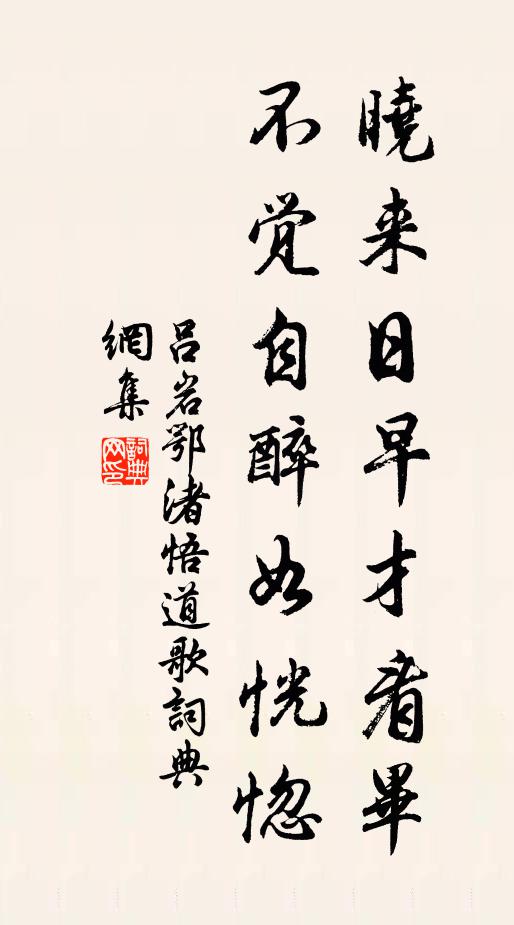 曉来日早才看畢
不觉自醉如恍惚
吕岩鄂渚悟道歌詞典
網集
詞典网印